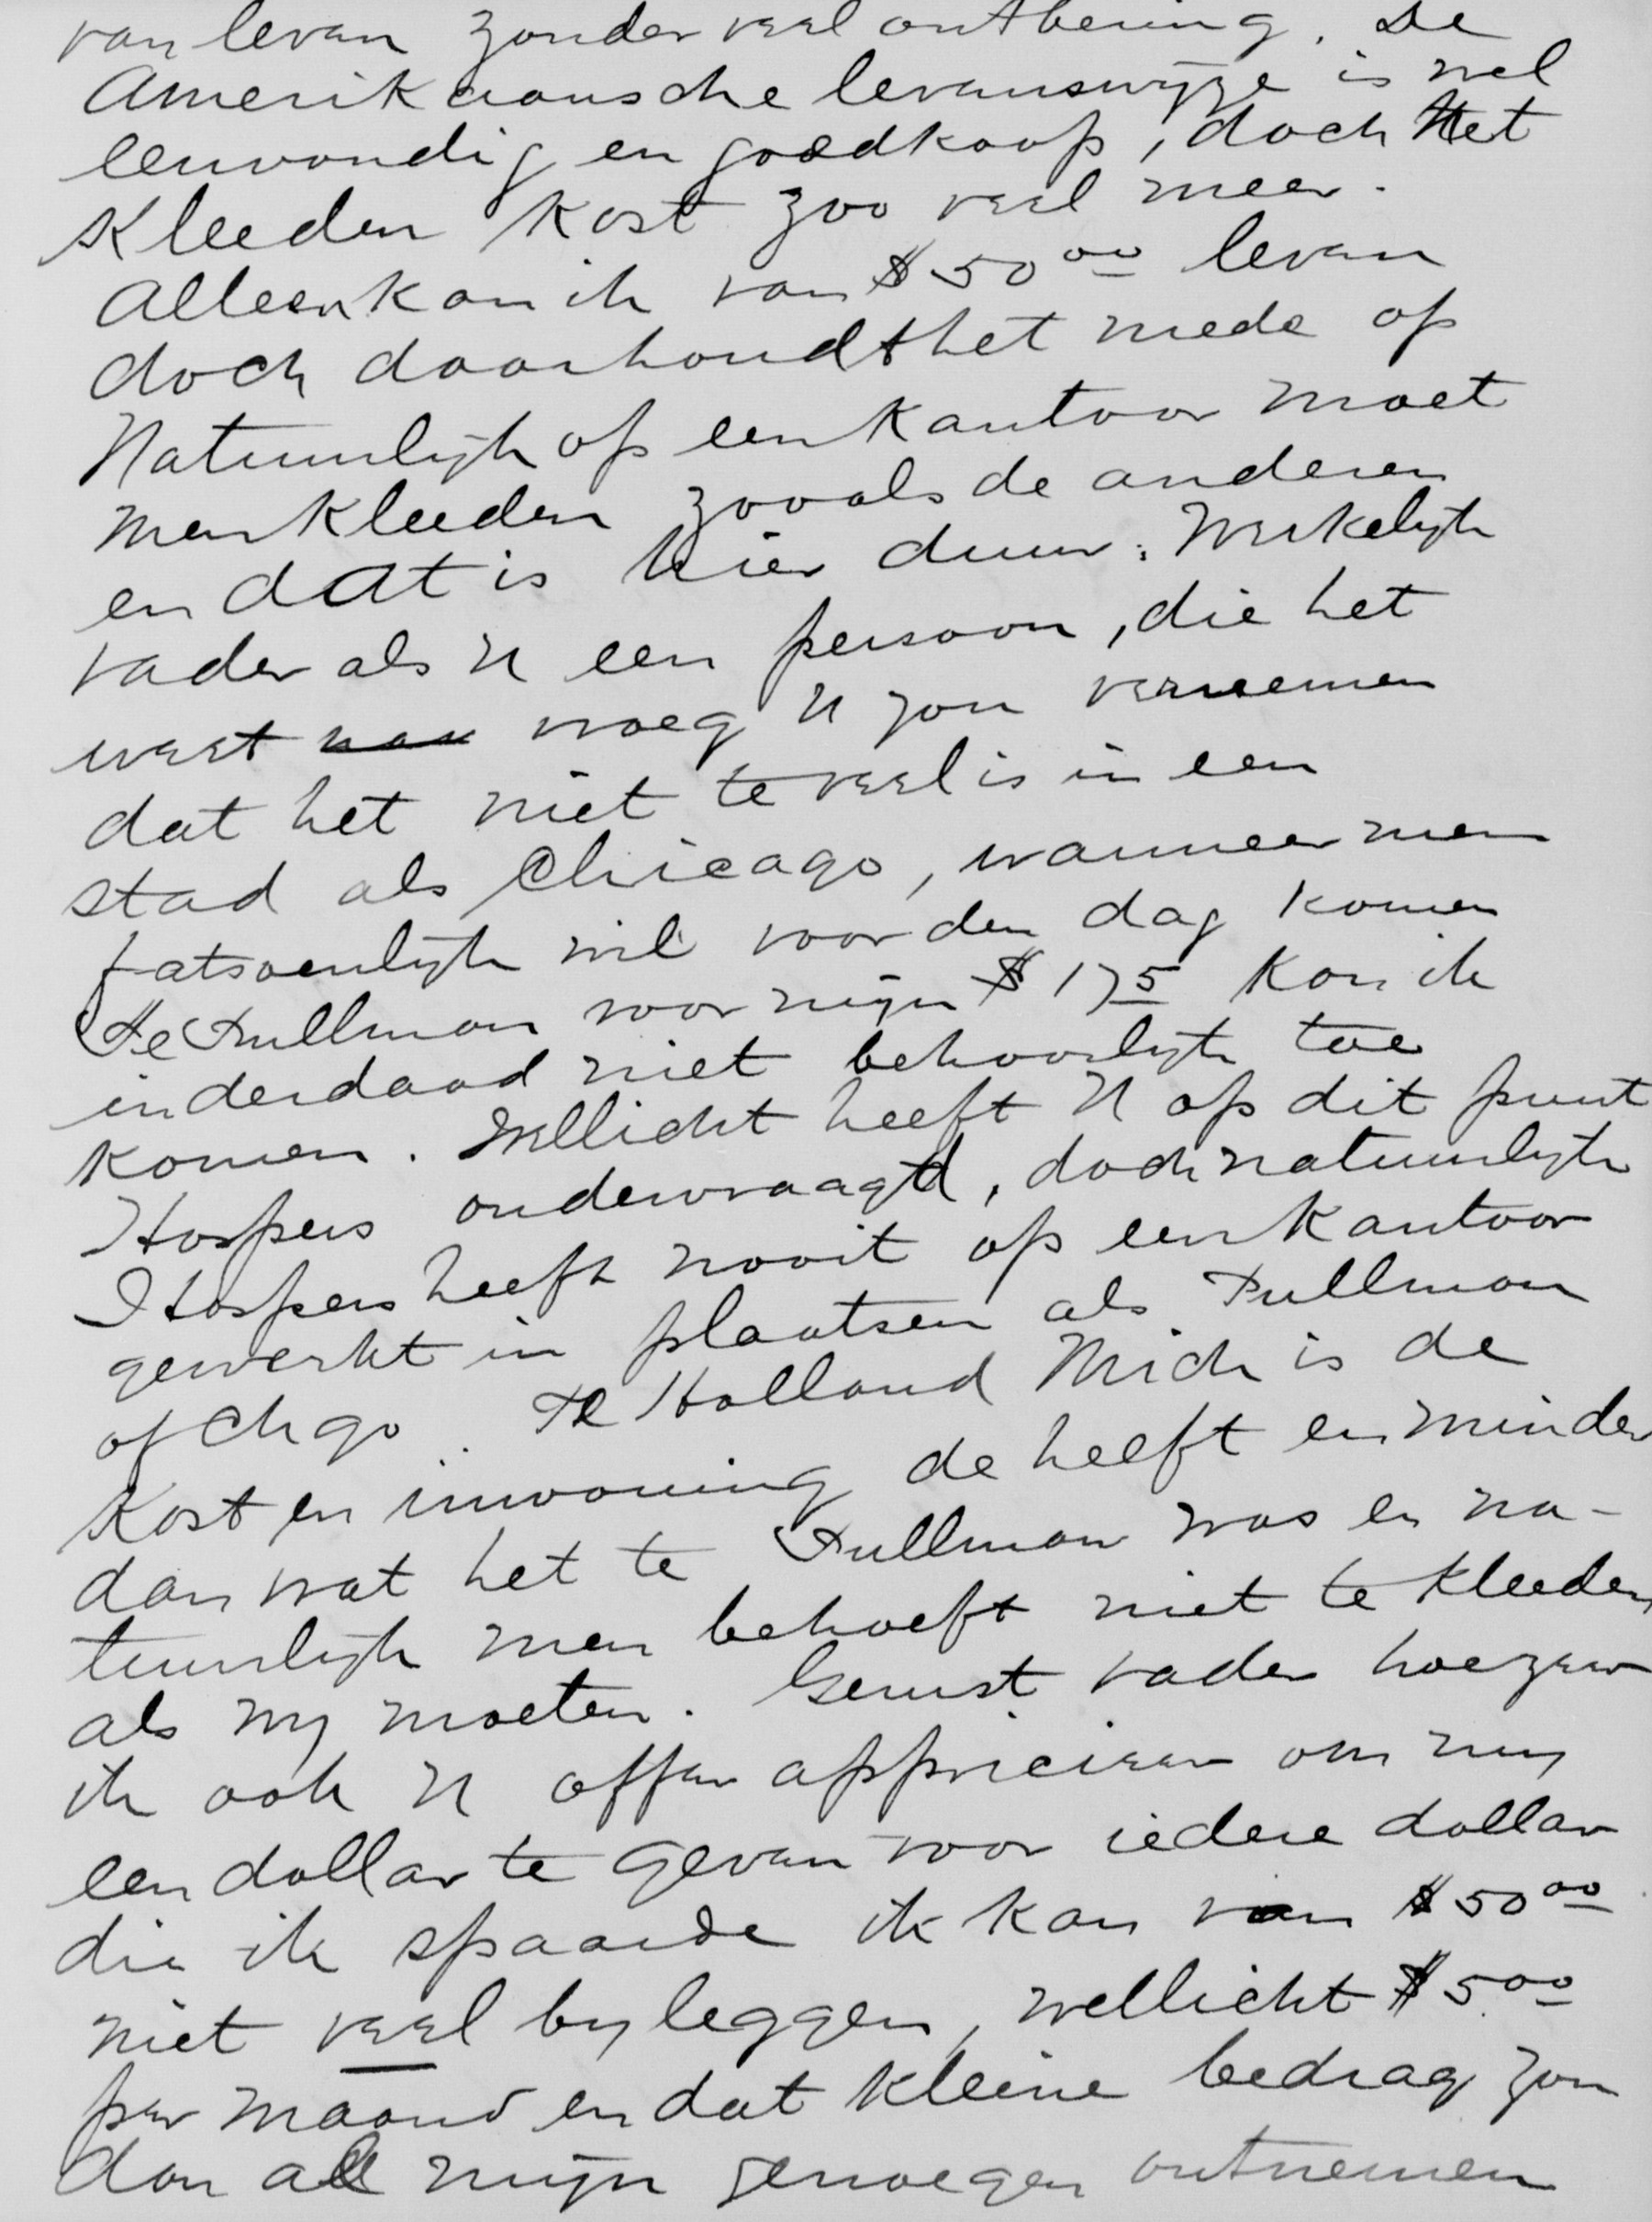 van leven zonder veel ontbering. De
Amerikaansche levenswijze is wel
eenvoudig en goedkoop, doch het
Kleeden kost zoo veel meer.
Alleen kan ik van $50.00 leven
doch daar houdt het mede op
Natuurlijk op een kantoor moet
men kleeden zooals de anderen
en dat is hier duur. Werkelijk
vader als U een persoon, die het
weet vroeg U zou vernemen
dat het niet te veel is in een
stad als Chicago, wanneer men
fatsoenlijk wil voor den dag komen
Te Pullman voor mijn $175 kon ik
inderdaad niet behoorlijk toe
komen. Wellicht heeft U op dit punt
Hospers ondervraagd, doch natuurlijk
Hospers heeft nooit op een kantoor
gewerkt in plaatsen als Pullman
of Chgo. Te Holland Mich is de
Kost en inwoning de helft en minder
dan wat het te Pullman was en na-
tuurlijk men behoeft niet te kleeden
als wy moeten. Gerust vader hoezeer
ik ook U offer appricieer om my
een dollar te geven voor iedere dollar
die ik spaarde ik kan van $50.00
niet veel by leggen, wellicht $5.00
per maand en dat kleine bedrag zou
dan all mijn genoegen ontnemen